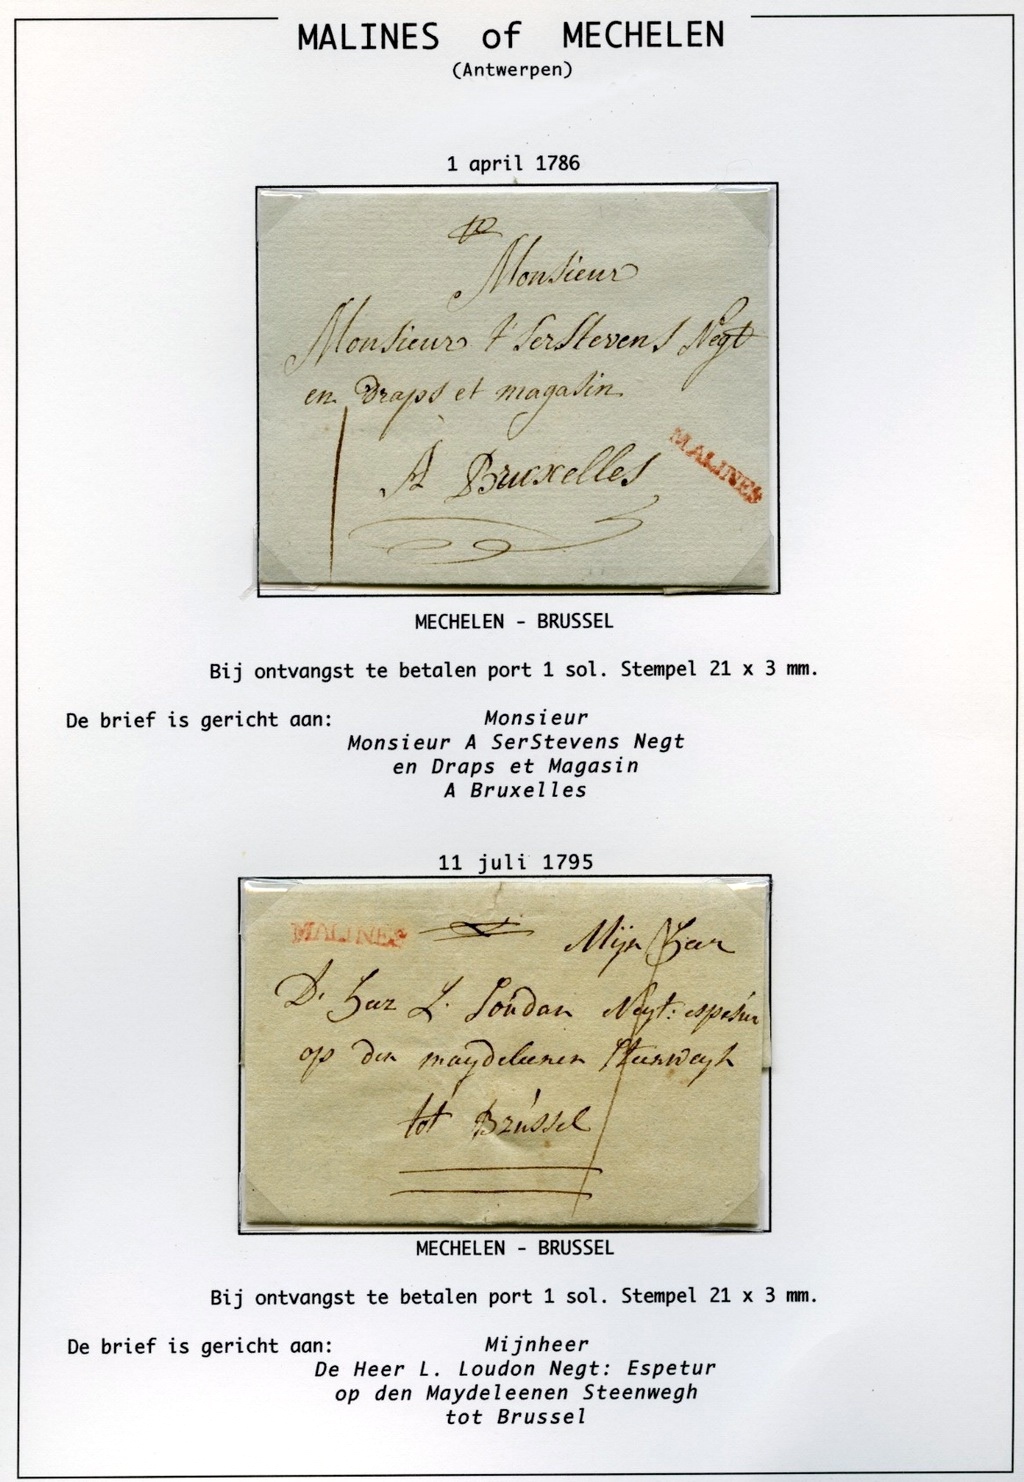 MALINES of MECHELEN
(Antwerpen)
1 april 1786
Monsieur
Monsieur t'SerStevens Negt
en Draps et magasin
A Bruxelles
MALINES
MECHELEN - BRUSSEL
Bij ontvangst te betalen port 1 sol. Stempel 21 x 3 mm.
De brief is gericht aan: Monsieur
Monsieur A SerStevens Negt
en Draps et Magasin
A Bruxelles
11 juli 1795
MALINES
Mijn Heer
D. Heer L. Loúdon Negt: espesier
op den maydeleenen Steenwegh
tot Brússel
MECHELEN - BRUSSEL
Bij ontvangst te betalen port 1 sol. Stempel 21 x 3 mm.
De brief is gericht aan: Mijnheer
De Heer L. Loudon Negt: Espetur
op den Maydeleenen Steenwegh
tot Brussel